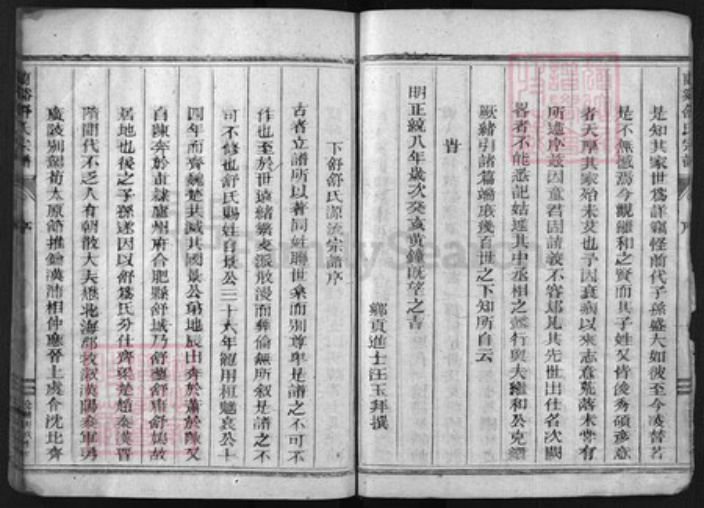 是知其家世爲詳竊怪前代子孫盛大如彼至今凌替若
是不無憾焉今觀繼和之賢而其子姓又皆俊秀碩彥意
者天厚其家始未艾也予因衰病以來志意荒落未嘗有
所述序茲因童君固請義不容辭見其先世出仕名次闕
畧者不能悉記姑述其中丞相之懿行與夫繼和公克纘
厥緒引諸篇端庶幾百世之下知所自云
旹
明正統八年歲次癸亥黃鐘既望之吉
鄉貢進士汪玉拜撰
下舒舒氏源流宗譜序
古者立譜所以著同姓聯世系而別尊卑是譜之不可不
作也至於世遠緒繁支派散漫而彝倫無所叙是譜之不
可不修也舒氏賜姓自景公三十六年寵用桓魋哀公十
四年而齊魏楚共滅其國景公弟地辰出奔於蕭於陳又
自陳奔於直隸廬州府合肥縣舒城乃舒蓼舒庸舒鳩故
居地也後之子孫遂因以舒爲氏分仕齊梁楚趙秦漢晋
隋閒代不乏人有朝散大夫雄北海郡牧淑漢陽參軍勇
廣陵別駕荀太原節推鑰漢沛相仲應晉上虞令沈比齊
蘭谿舒氏宗譜
序